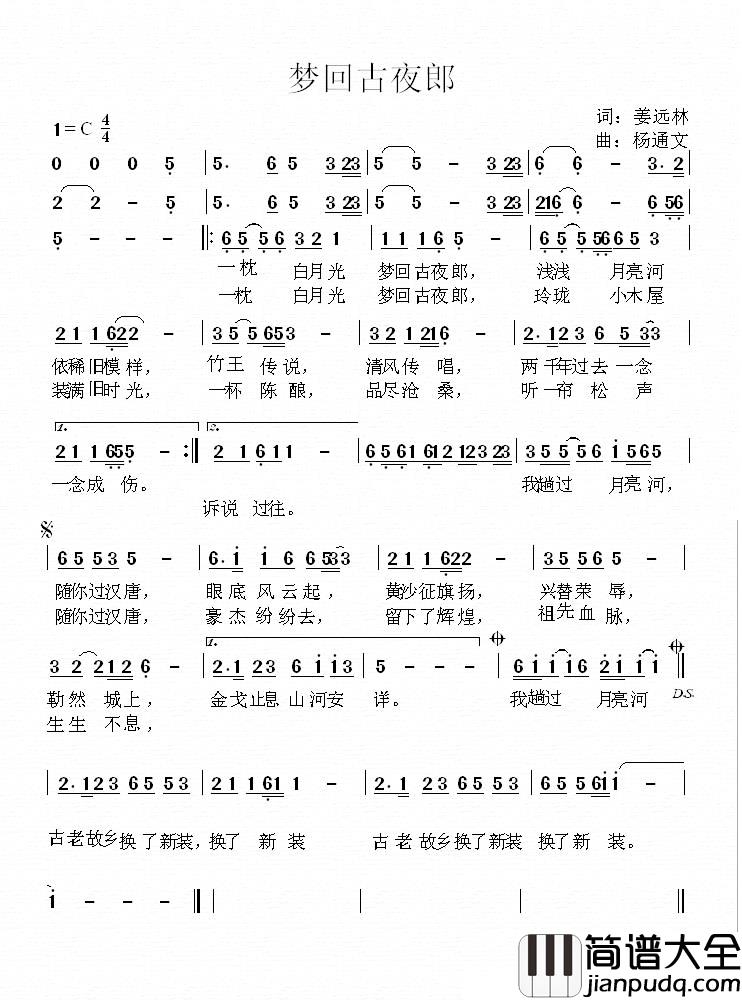 梦回古夜郎
1=C 4/4
词：姜远林
曲：杨通文
0 0 0 5 | 5· 6 5 3 23 | 5 5 - 3 23 | 6 6 - 3·2 |
2 2 - 5 | 5· 6 5 3 23 | 5 5 - 3 23 | 216 6 - 6 56 |
5 - - - |: 6 5 5 6 3 2 1 | 1 1 1 6 5 - | 6 5 5 56 6 5 3 |
一枕 白月光 梦回古夜郎， 浅浅 月亮河
一枕 白月光 梦回古夜郎， 玲珑 小木屋
2 1 1 622 - | 3 5 5 653 - | 3 2 1 216 - | 2· 12 3 6 5 33 |
依稀旧模样， 竹王 传说， 清风传 唱， 两千年过去一念
装满旧时光， 一杯 陈酿， 品尽沧 桑， 听一帘 松 声
1. 2.
2 1 1 655 - :| 2 1 6 1 1 - | 6 5 61 61 2 12 3 23 | 3 5 5 5 6 i 5 6 5 |
一念成 伤。 我趟过 月亮河，
诉说 过往。
6 5 5 3 5 - | 6· i i 6 6 533 - | 2 2 1 1 622 - | 3 5 5 6 5 - |
随你过汉唐， 眼底 风云起， 黄沙征旗扬， 兴替荣 辱，
随你过汉唐， 豪杰纷纷去， 留下了辉煌， 祖先血 脉，
1.
3 2 2 21 2 6 - | 2·1 2 3 6 i i 3 | 5 - - - | 6 i i i 6 2 i i i ||
勒然 城上， 金戈止息山河安 详。 我趟过 月亮河
生生 不息，
D.S.
2·1 2 3 6 5 5 3 | 2 1 1 61 1 - | 2·1 2 3 6 5 5 3 | 5 6 5 6 i i - |
古老故乡换了新装，换了 新 装 古老故乡换了新装 换了新 装。
i - - - ||
简谱大全
jianpudq.com